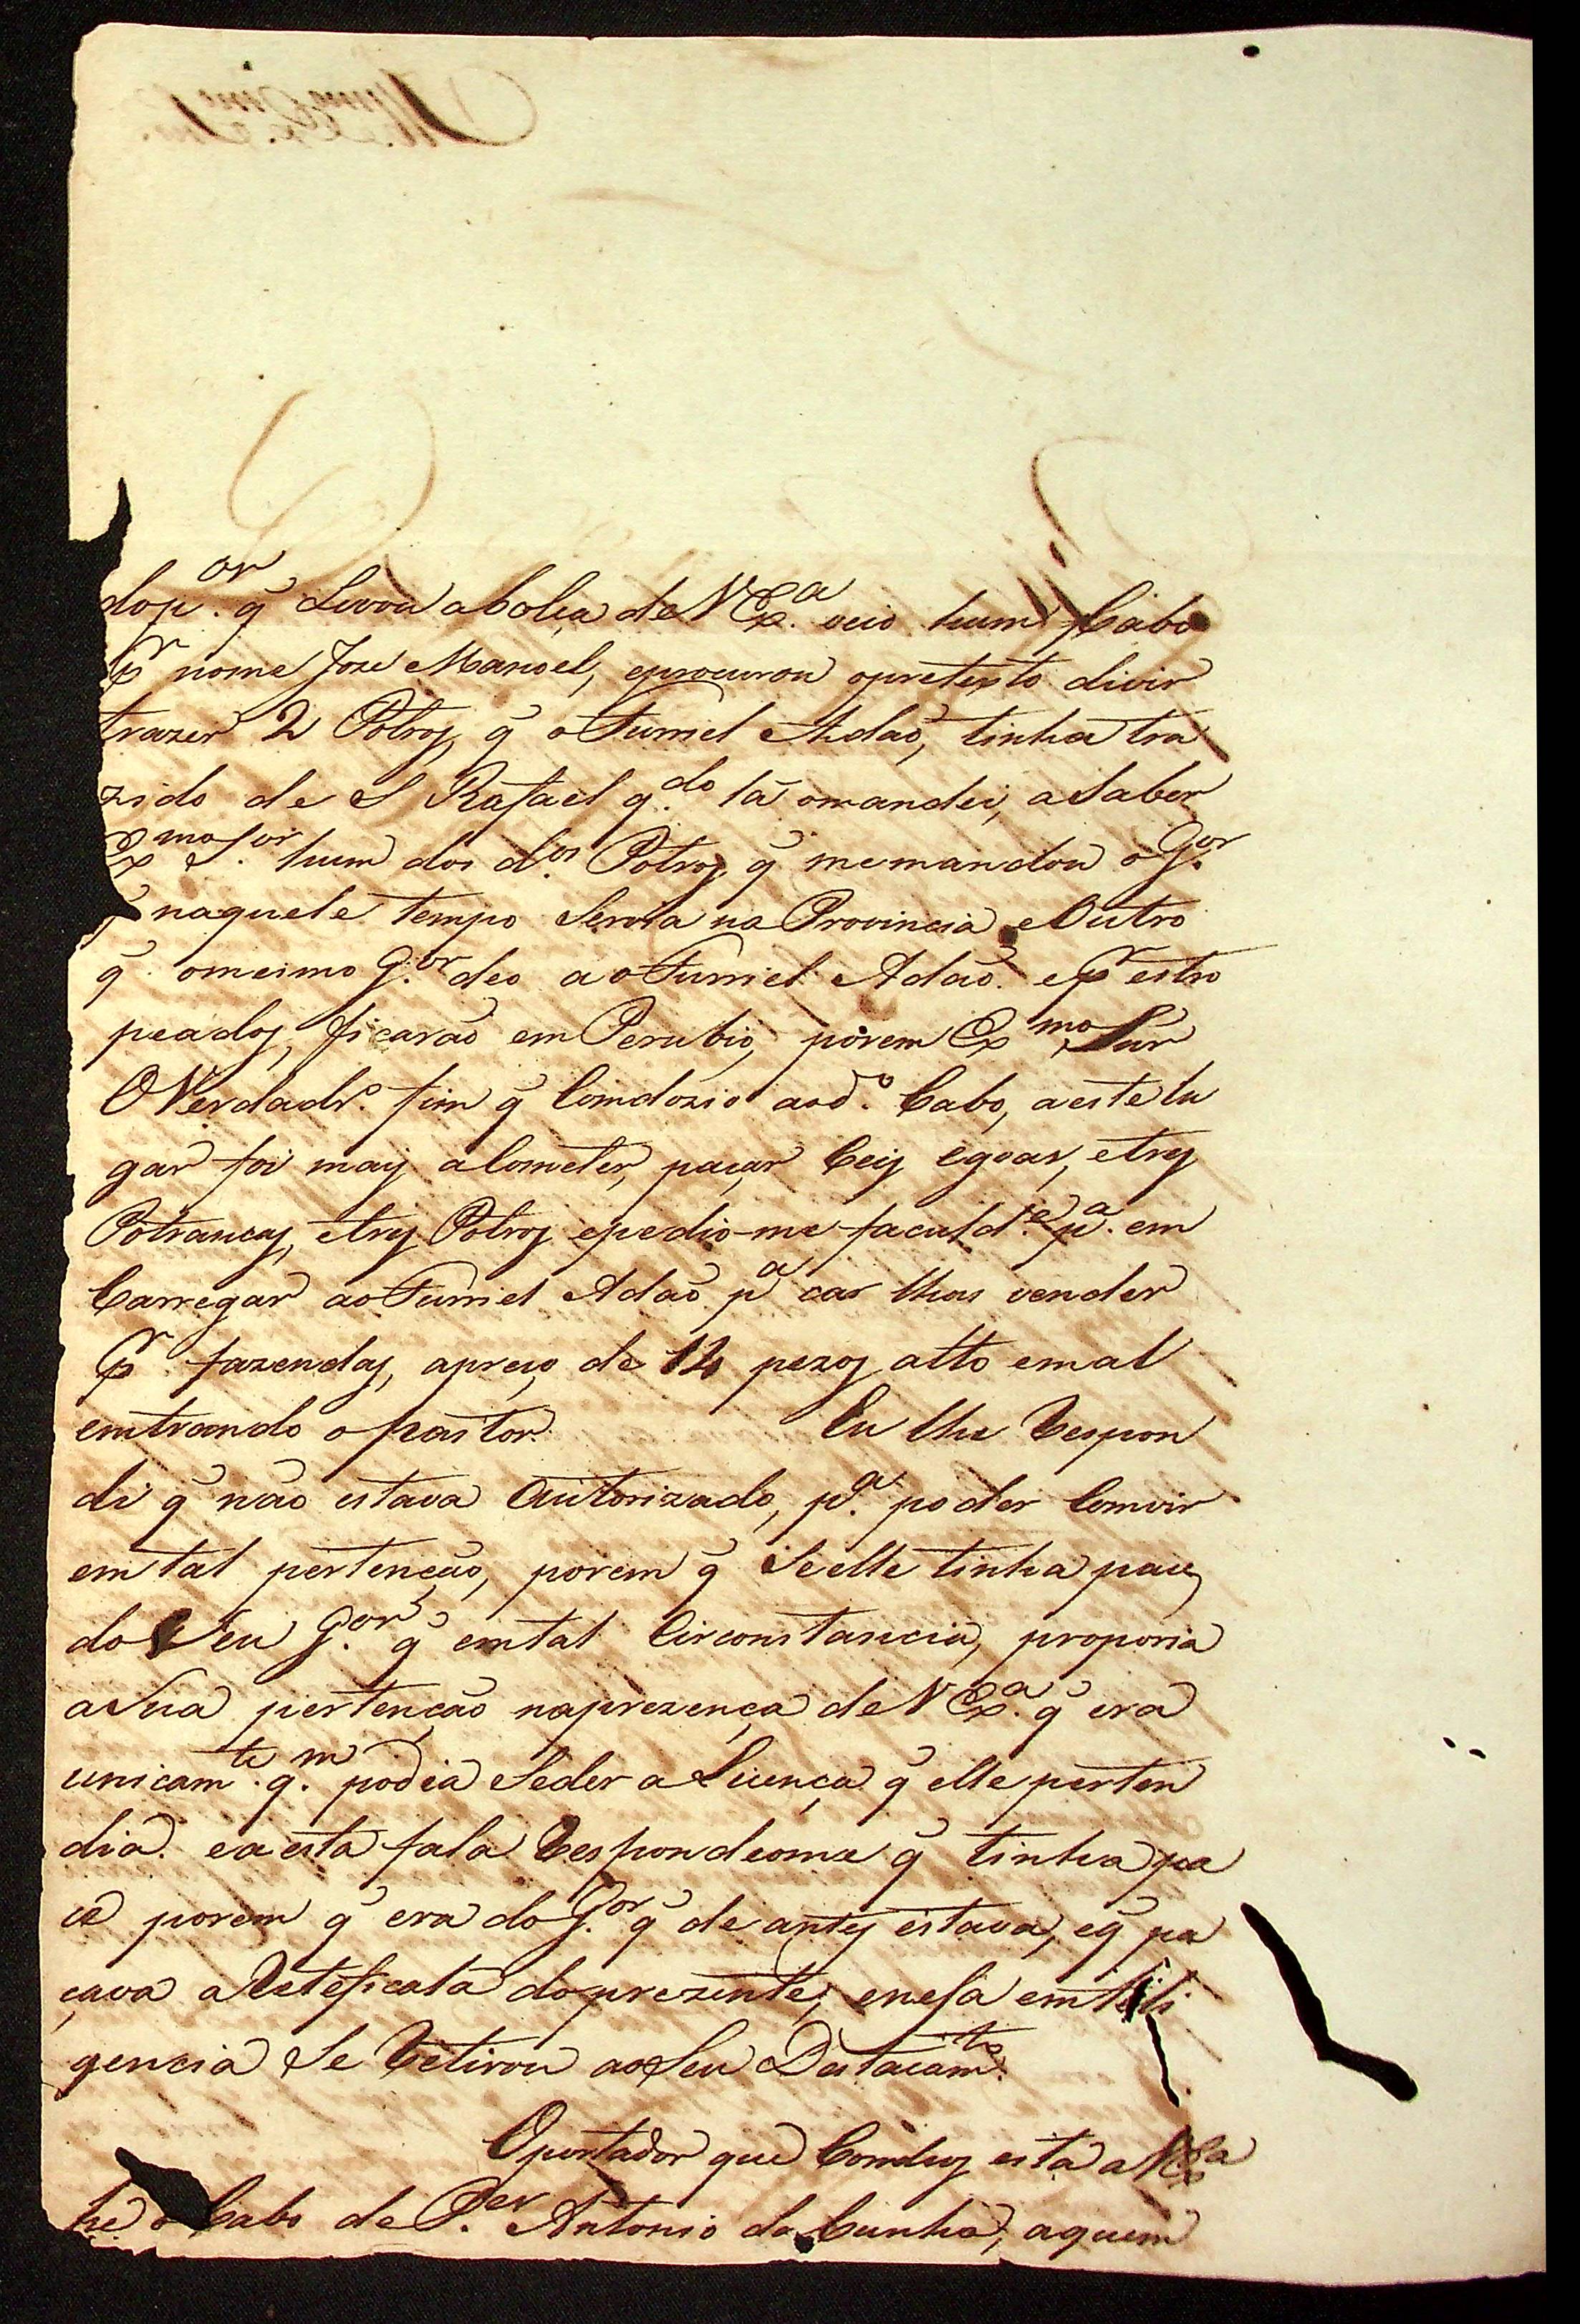 dop.or q̃ Levou abolça de V Ex.a veio hum Cabo
Pr nome Joze Manoel, eprocurou opretexto divir
trazer 2 Potros, q̃ o Furriel Adaõ, tinha tra
zido de S Rafael q.do lá omandei, aSaber
Exmo S.or hum dos d.os Potros, q̃ memandou o G.or
q̃ naquele tempo Servia na Provincia, eOutro
q̃ omeimo G.or deo ao Furriel Adaõ. e Pr estro
peados, ficaraõ em Perubio, porem Ex mo Snr
O Verdadr.o fim q̃ Comdozio aod.o Cabo, aeste lu
gar foi mais aCometer, paçar Ceis egoas, etres
Potrancas, etres Potros epedio-me faculd.e p.a em
Carregar ao Furriel Adaõ pa cas lhas vender
Pr fazendas, apreço de 12 pezos alto emal
emtrando opastor. Eu lhe Respon
di q̃ naõ estava Autorizado, p.a poder Comvir
em tal pertençaõ, porem q̃ Seelle tinha pace
do Seu G.or q̃ emtal Circonstancia, proporia
aSua pertençaõ naprezença de V Ex.a q̃ era
unicam.te q.m podia Seder a Licença q̃ elle perten
dia. eaesta fala Respondeome q̃ tinha pa
ce porem q̃ era do G.or q̃ de antes estava, eq̃ pa
çava aReteficala doprezente, enesa emteli
gencia Se Retirou aoSeu Destacam.to
Oportador que Comdus esta a V Exa
he o Cabo de P.es Antonio da Cunha, aquem